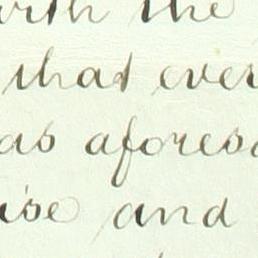 with the
that ever
as aforesa
ise and